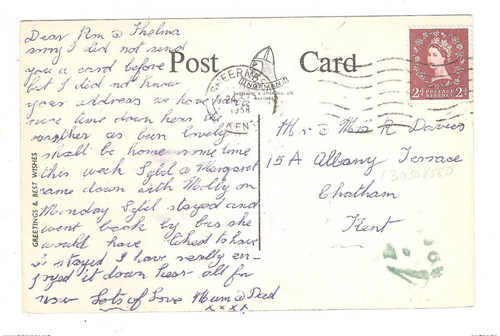 Dear Ron @ Thelma
sorry I did not send
you a card before
but I did not know
your address we have had a
nice time down here the
weather as been lovely
shall be home some time
this week Sybil @ Margaret
came down with Molly on
Monday Sybil stayed and
went back by bus she
would have liked to have
stayed I have really en-
joyed it down hear all for
now Lots of Love Mum @ Dad
x x x x
GREETINGS & BEST WISHES
Post Card
SHEERNESS
KENT
2d POSTAGE REVENUE 2d
Mr @ Mrs R Davies
15A Albany Terrase
Chatham
Kent
130308580